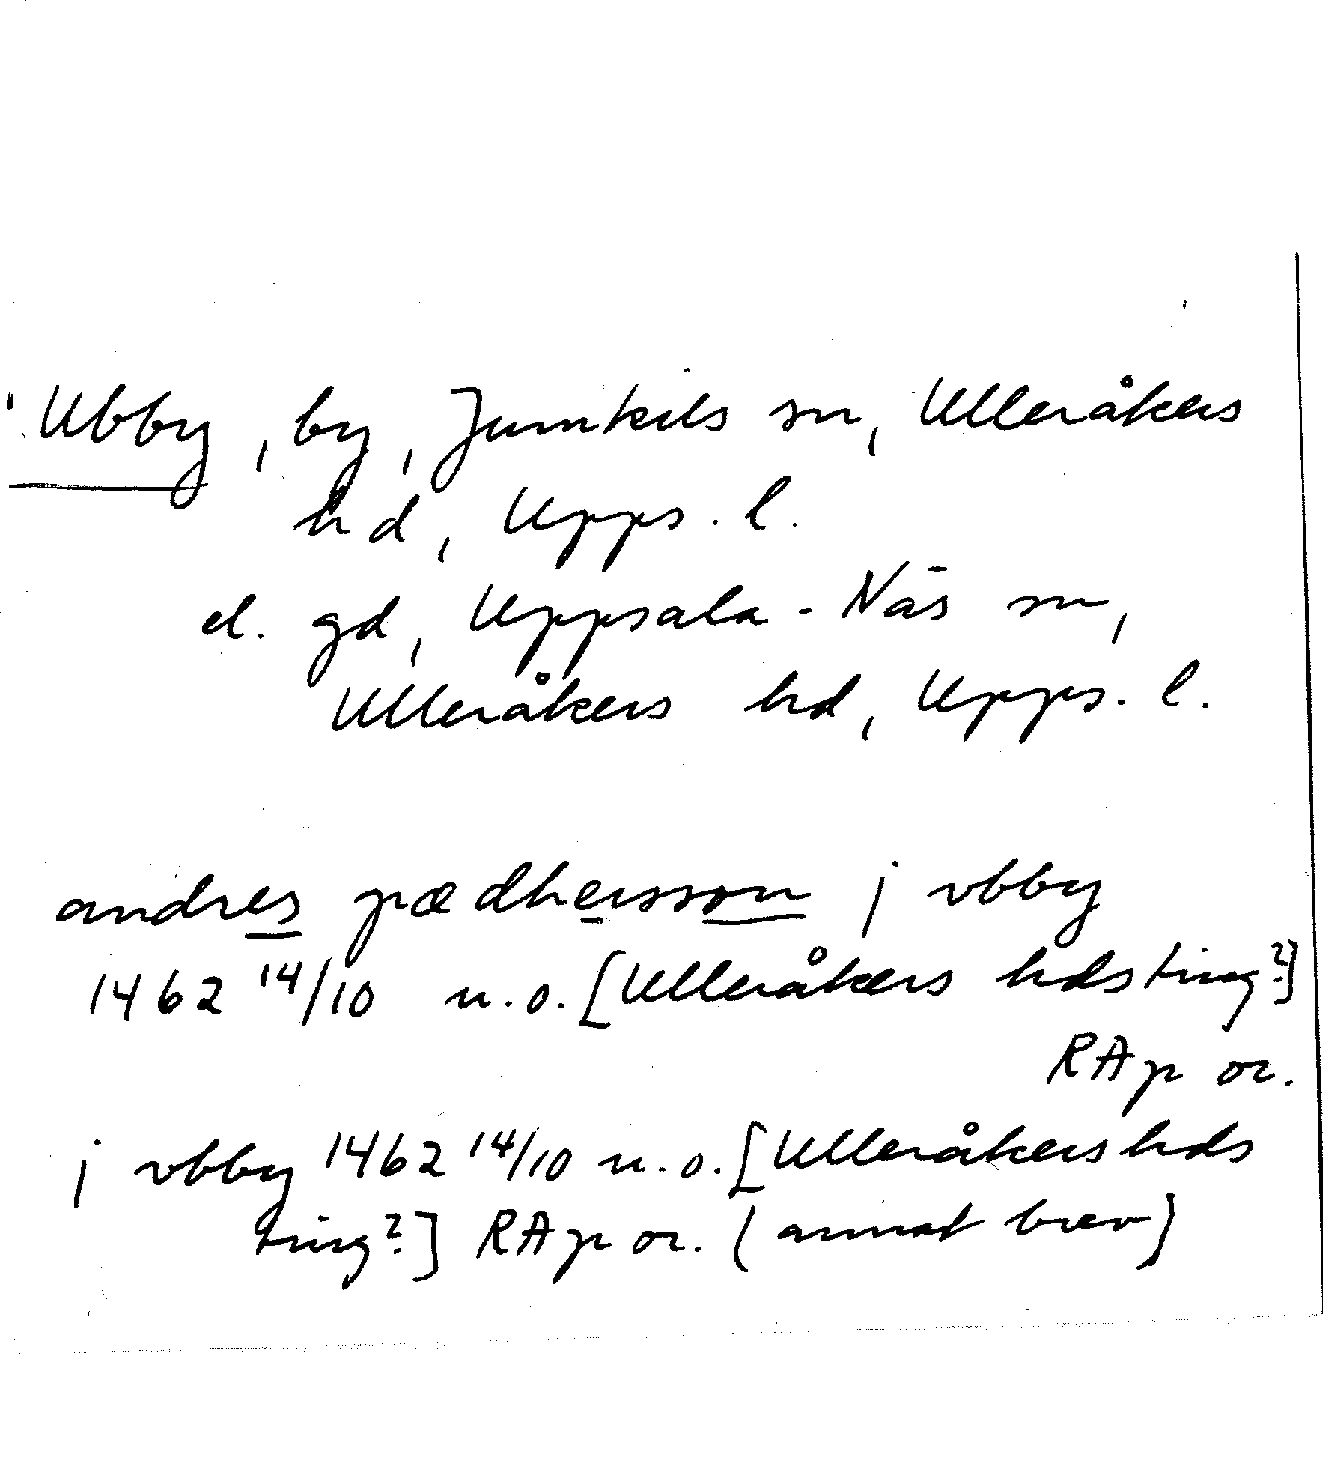 Ubby, by, Jumkils sn, Ulleråkers
hd, Upps. l.
el. gd, Uppsala-Näs sn,
Ulleråkers hd, Upps. l.
andres pædhersson j vbby
1462 14/10 u.o. [Ulleråkers hds ting?]
RAp or.
j vbby 1462 14/10 u.o. [Ulleråkers hds
ting?] RAp or. (annat brev)